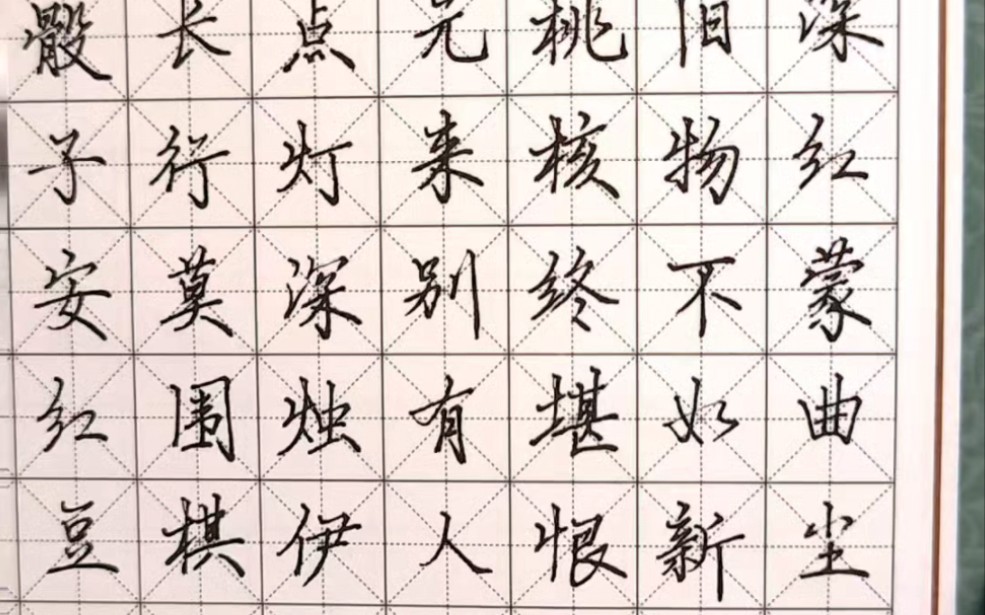 深红蒙曲尘
旧物不如新
桃核终堪恨
元来别有人
点灯深烛伊
长行莫围棋
骰子安红豆